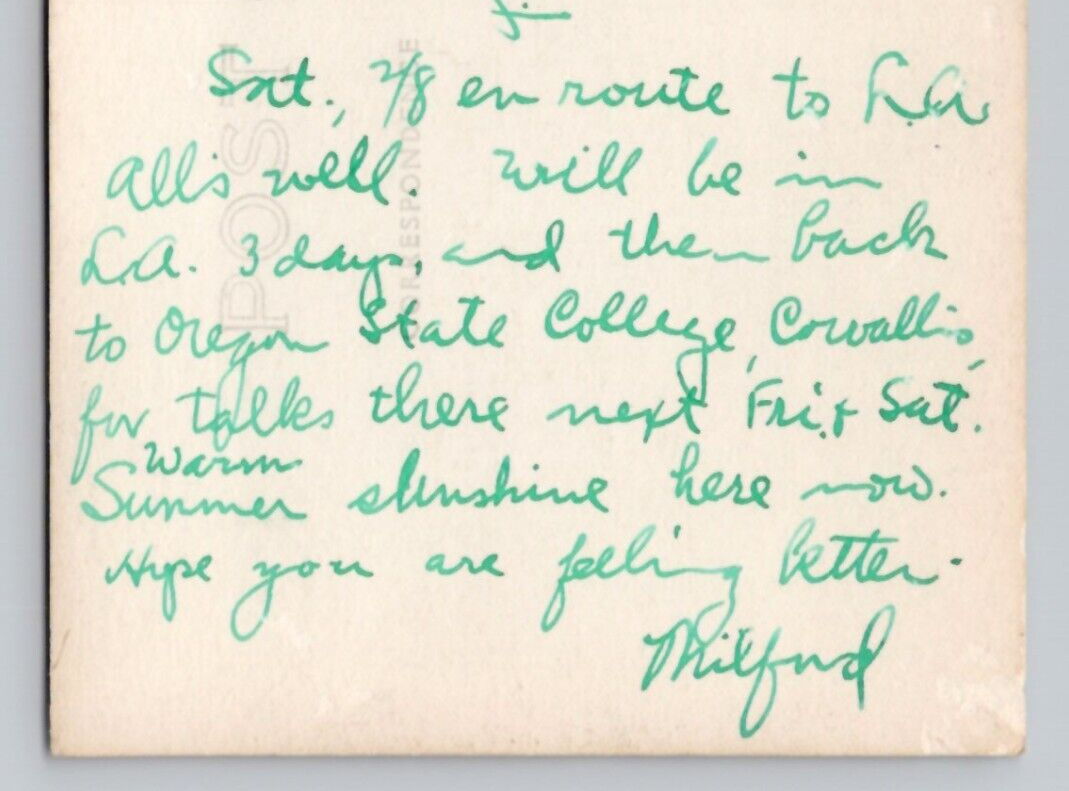 Sat., 2/8 en route to L.A.
All's well. Will be in
L.A. 3 days, and then back
to Oregon State College, Corvallis,
for talks there next Fri. & Sat.
Warm
Summer sunshine here now.
Hope you are feeling better.
Milford
POST
CORRESPONDENCE